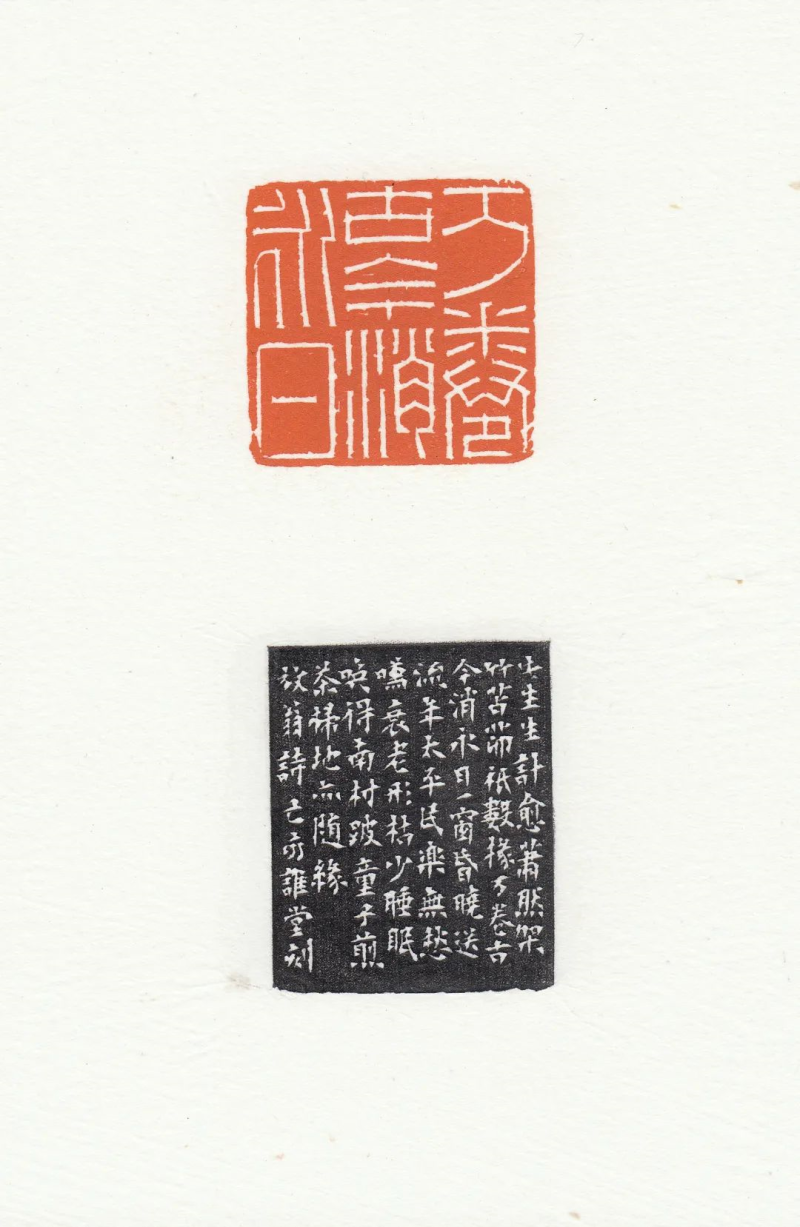 万卷
古今消
永日
此生生計愈蕭然架
竹苫茆祇數椽万卷古
今消永日一窗昏曉送
流年太平民楽無愁
嘆衰老形枯少睡眠
喚得南村跛童子煎
茶掃地亦随緣
放翁詩亥誰堂刻